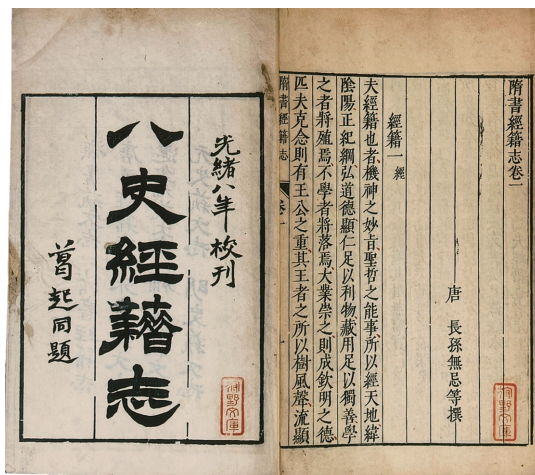 隋書經籍志卷一
唐 長孫無忌等撰
經籍一 經
夫經籍也者機神之妙旨聖哲之能事所以經天地緯
陰陽正紀綱弘道德顯仁足以利物藏用足以獨善學
之者將殖焉不學者將落焉大業崇之則成欽明之德
匹夫克念則有王公之重其王者之所以樹風聲流顯
隋書經籍志
卷一
光緒八年校刊
八史經籍志
葛起同題